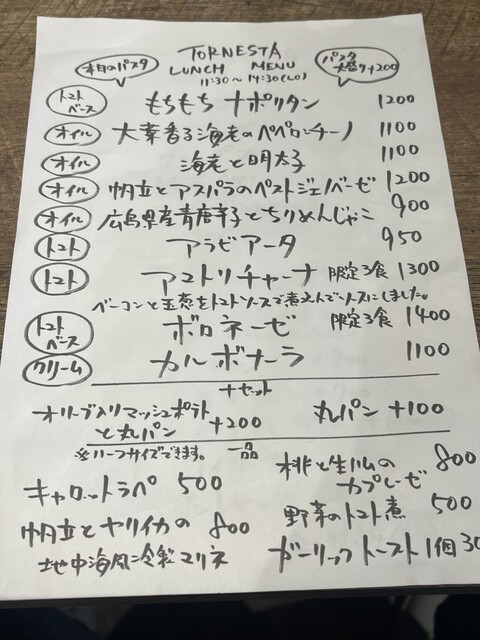 TORNESTA
LUNCH MENU
11:30〜14:30(LO)
本日のパスタ
パスタ
大盛り+200
トマトベース もちもちナポリタン 1200
オイル 大葉香る海老のペペロンチーノ 1100
オイル 海老と明太子 1100
オイル 帆立とアスパラのペストジェノベーゼ 1200
オイル 広島県産青唐辛子とちりめんじゃこ 900
トマト アラビアータ 950
トマト アマトリチャーナ 限定3食 1300
ベーコンと玉葱をトマトソースで煮込んでソースにしました。
トマトベース ボロネーゼ 限定3食 1400
クリーム カルボナーラ 1100
+セット
オリーブ入りマッシュポテト
と丸パン +200
丸パン +100
※ハーフサイズできます。
一品
キャロットラペ 500
帆立とヤリイカの 800
地中海風冷製マリネ
桃と生ハムの 800
カプレーゼ
野菜のトマト煮 500
ガーリックトースト1個